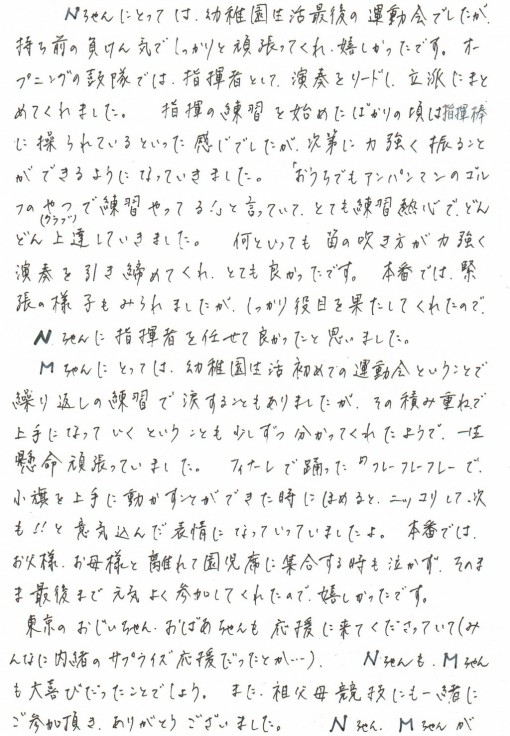 Nちゃんにとっては、幼稚園生活最後の運動会でしたが、
持ち前の負けん気でしっかりと頑張ってくれ、嬉しかったです。オー
プニングの鼓隊では、指揮者として、演奏をリードし、立派にまと
めてくれました。 指揮の練習を始めたばかりの頃は指揮棒
に操られているといった感じでしたが、次第に力強く振ること
ができるようになっていきました。「おうちでもアンパンマンのゴル
フのやつ(クラブ)で練習やってる!」と言っていて、とても練習熱心で、どん
どん上達していきました。 何といっても笛の吹き方が力強く
演奏を引き締めてくれ、とても良かったです。 本番では、緊
張の様子もみられましたが、しっかり役目を果たしてくれたので、
Nちゃんに指揮者を任せて良かったと思いました。
Mちゃんにとっては、幼稚園生活初めての運動会ということで
繰り返しの練習で涙することもありましたが、その積み重ねで
上手になっていくということも少しずつ分かってくれたようで、一生
懸命頑張っていました。 フィナーレで踊った〃フレーフレーフレーで、
小旗を上手に動かすことができた時にほめると、ニッコリして、次
も!!と意気込んだ表情になっていっていましたよ。 本番では、
お父様、お母様と離れて園児席に集合する時も泣かず、そのま
ま最後まで元気よく参加してくれたので、嬉しかったです。
東京のおじいちゃん、おばあちゃんも応援に来てくださっていて(み
んなに内緒のサプライズ応援だったとか…)、 Nちゃんも、Mちゃん
も大喜びだったことでしょう。 また、祖父母競技にも一緒に
ご参加頂き、ありがとうございました。 Nちゃん、Mちゃんが